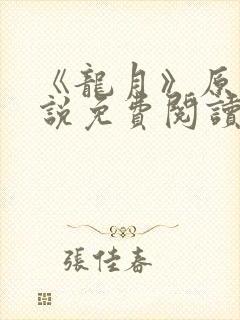 《龍月》原
說免費閱讀
張佳春